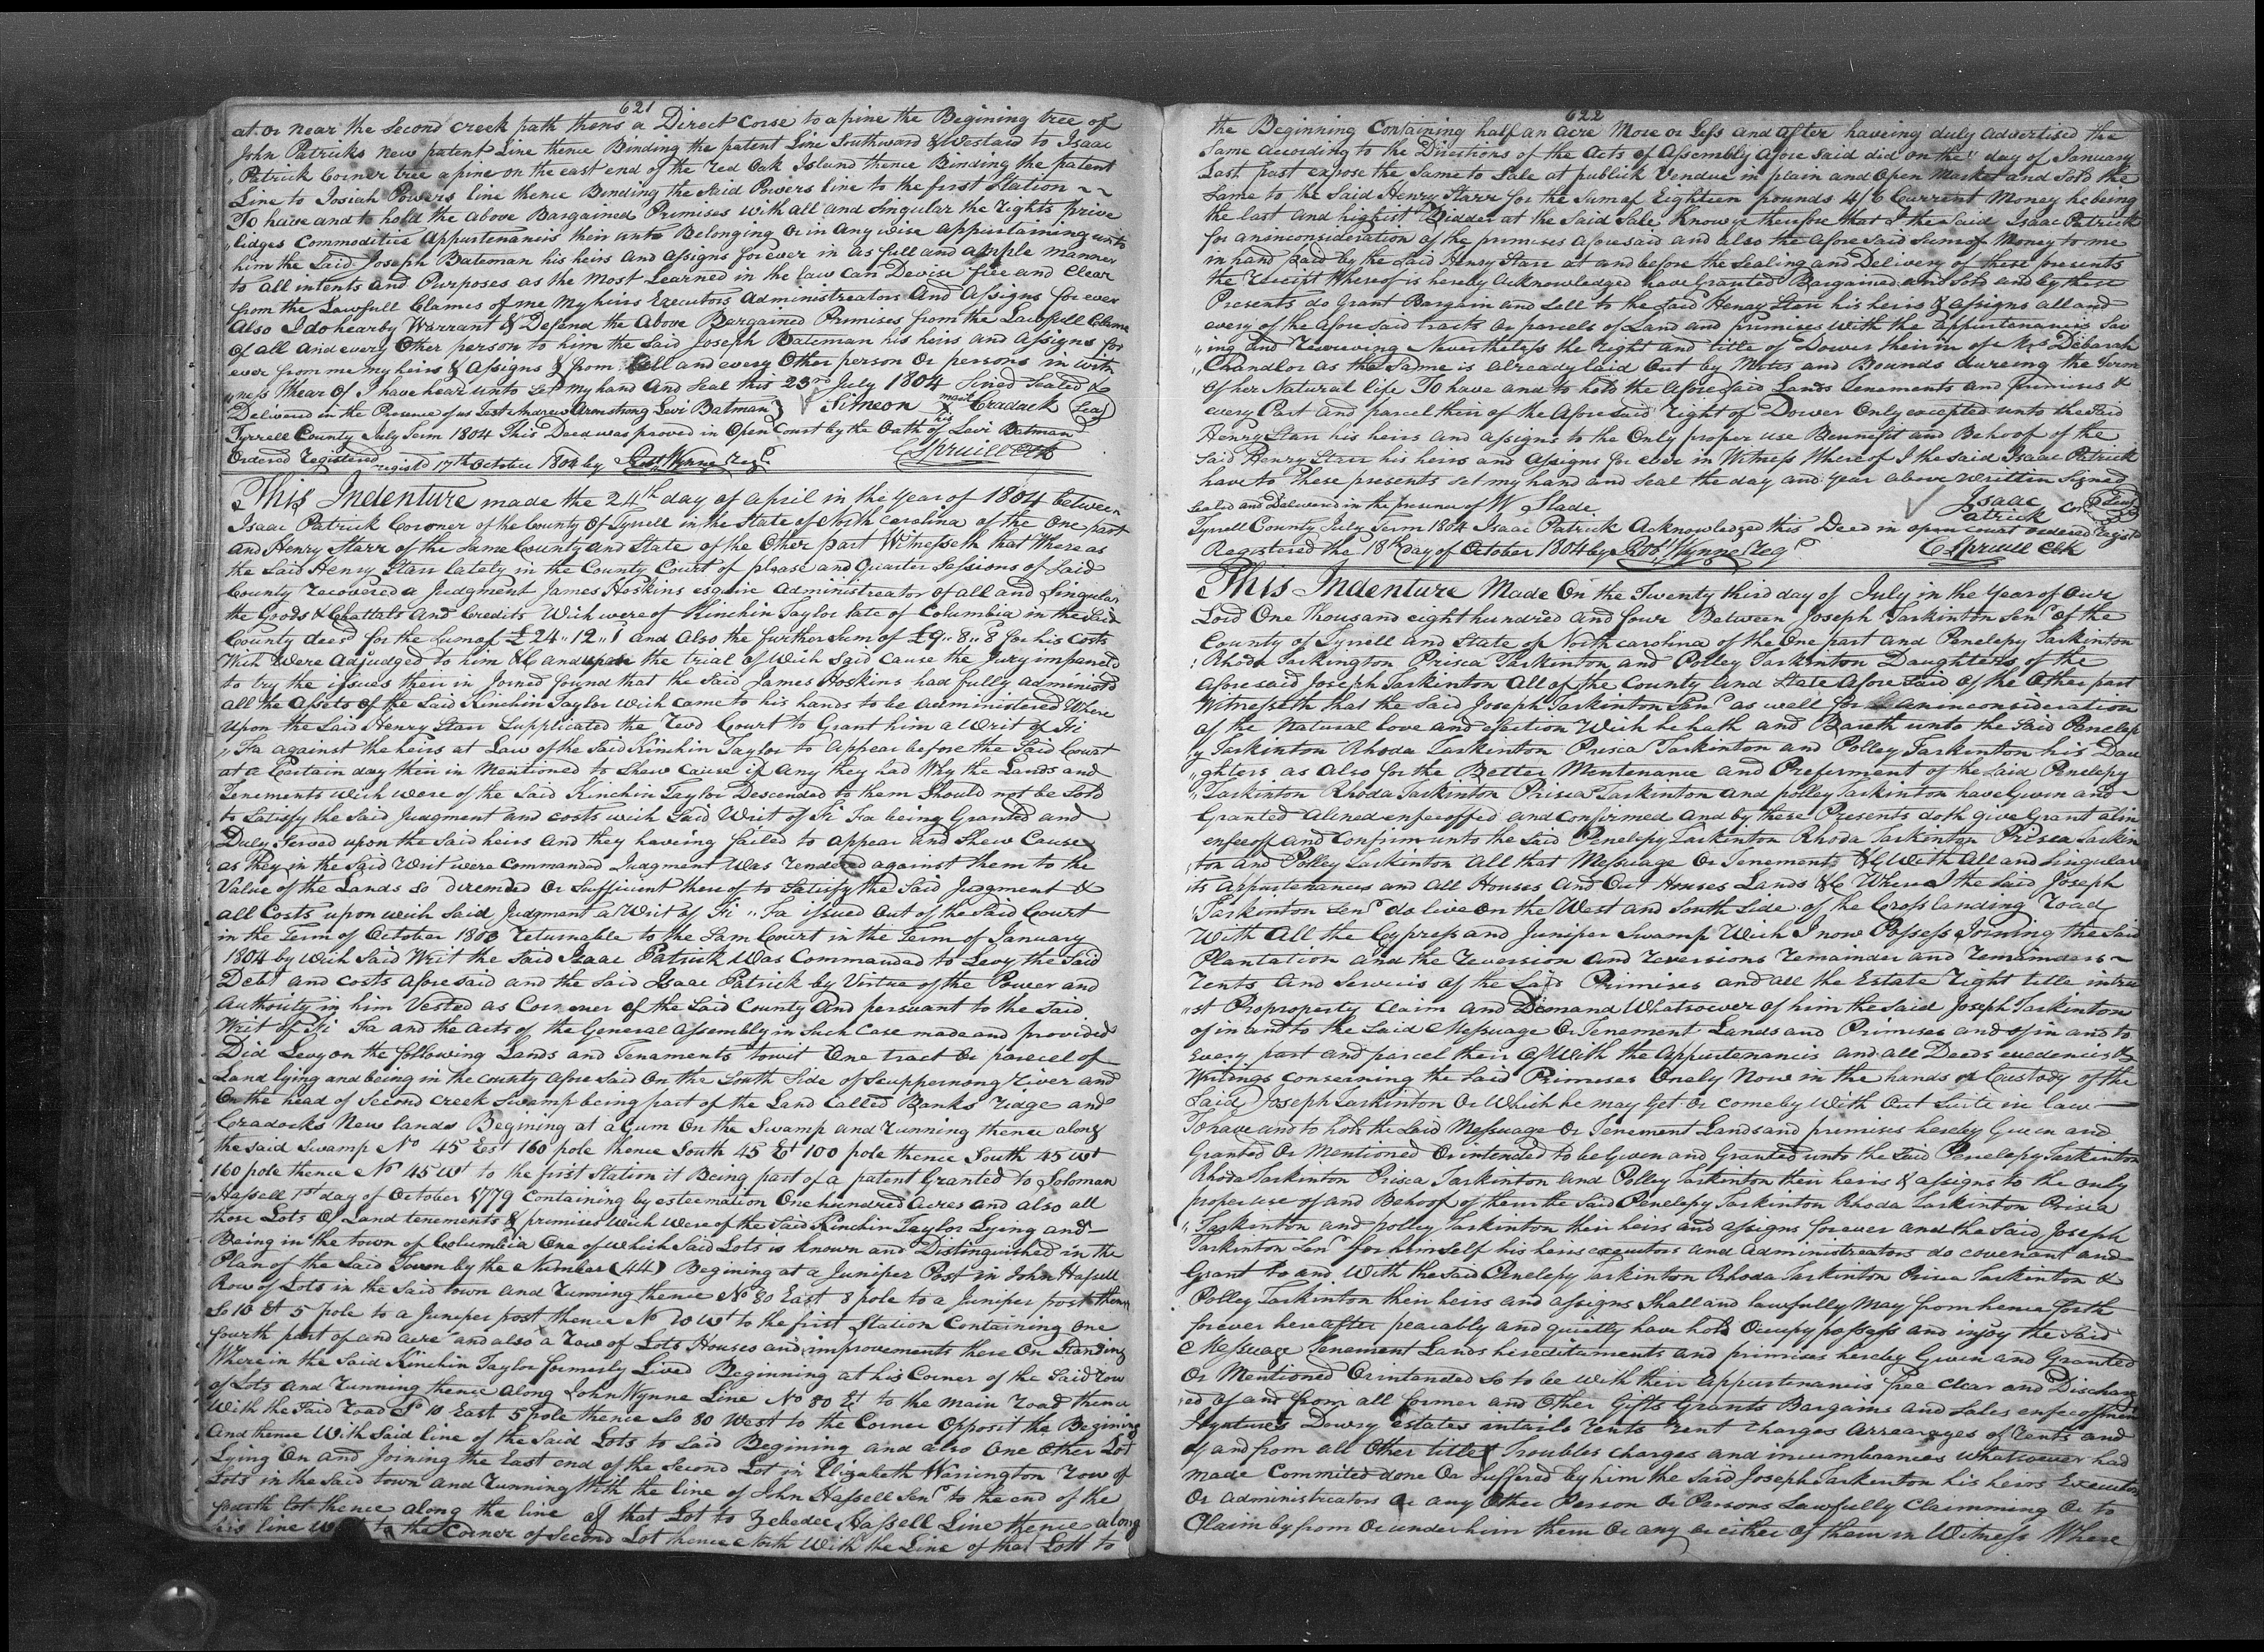 621
at or near the Second creek path thens a Direct Corse to a pine the Begining tree of
John Patricks new patent Line thence Binding the patent Line Southward & Westard to Isaac
Patrick Corner tree a pine on the east end of the Red Oak Island thence Binding the patent
Line to Josiah Powers line thence Bending the Said Powers line to the first Station
To have and to hold the above Bargained Premises with all and Singular the rights prive
ledges Commodities Appurtenancis their unto Belonging Or in any wise appurtaining unto
him the Said Joseph Bateman his heirs and assigns for ever in as full and ample manner
to all intents and Purposes as the Most Learned in the law Can Devise free and Clear
from the Lawfull Clames of me My heirs Executors Administreators And Assigns for ever
Also I do hearby Warrant & Defend the Above Bargained Premises from the Lawfull Clame
Of all and every Other person to him the Said Joseph Bateman his heirs and Assigns for
ever from me my heirs & Assigns & from all and every Other person Or persons in witn
ness Whear Of I have hear unto Set my hand And Seal this 23rd July 1804 Sined Sealed &
Delivered in the Presence of us Test Andrew Armstrong Levi Batman } Simeon his X mark Cradack (Seal)
Tyrrell County July Term 1804 This Deed was proved in Open Court by the Oath of Levi Batman
Ordered Registered regist'd 17th October 1804 by Robt Wynne Regr C Spruill Clk
This Indenture made the 24th day of april in the Year of 1804 between
Isaac Patrick Coroner of the County Of Tyrrell in the State of North Carolina of the One part
and Henry Starr of the Same County and State of the Other part Witnesseth that Where as
the Said Henry Starr lately in the County Court of please and Quarter Sessions of Said
County Recovered a Judgment James Hoskins esquire Administreator of all and Singular
the Goods & Chattals And Credits Wich were of Kinchin Taylor late of Columbia in the Said
County decd for the Sum of £24..12..1 and also the further Sum of £9..8..8 for his Costs
Wich Were Adjudged to him &C and upon the trial of Wich Said Cause the Jury impaneld
to try the issues their in Joined found that the Said James Hoskins had fully Administd
all the Assets Of the Said Kinchin Taylor Wich came to his hands to be administered Where
Upon the Said Henry Starr Supplicated the Court to Grant him a Writ of Fi
Fa against the heirs at Law of the Said Kinchin Taylor to appear before the Said Court
at a Certain day their in Mentioned to Shew Cause if any they had Why the Lands and
Tenements Wich were of the Said Kinchin Taylor Descended to them Should not be Sold
to Satisfy the Said Judgment and costs wich Said Writ of Fi Fa being Granted and
Duly Served upon the Said heirs and they haveing failed to appear and Shew Cause
as they in the Said Writ were Commanded Judgment Was rendered against them to the
Value of the Lands so decended Or Sufficient there of to Satisfy the Said Judgment &
all Costs upon wich Said Judgment a Writ of Fi Fa issued Out of the Said Court
in the Term of October 1803 returnable to the Sam Court in the Term of January
1804 by wich Said Writ the Said Isaac Patrick Was Commanded to Levy the Said
Debt and costs afore said and the Said Isaac Patrick by Virtue of the Power and
Authority in him Vested as Coroner of the Said County And persuant to the Said
Writ of Fi Fa and the Acts of the General Assembly in Such Case made and provided
Did Levy on the following Lands and Tenaments towit One tract Or parecel of
Land lying and being in the County afore Said On the South Side of Scuppernong River and
On the head of Second Creek Swamp being part of the Land Called Banks ridge and
Cradocks New lands Begining at a Gum On the Swamp and running thence along
the said Swamp No 45 Est 160 pole thence South 45 Et 100 pole thence South 45 Wt
160 pole thence No 45 Wt to the first Station it Being part of a patent Granted to Soloman
Hassell 1st day of October 1779 Containing by esteemation One hundred Acres and also all
those Lots Of Land tenements & premises wich were of the Said Kinchin Taylor Lying and
Being in the town of Columbia One of which Said Lots is known and Distinguished in the
Plan of the Said Town by the Number (44) Begining at a Juniper Post in John Hassell
Row of Lots in the Said town and Running thence No 80 East 8 pole to a Juniper post thence
So 10 Et 5 pole to a Juniper post thence No 10 Wt to the first Station Containing One
fourth part of and acre and also a Row of Lots Houses and improvements there On Standing
Where in the Said Kinchin Taylor formerly Lived Beginning at his Corner of the Said row
of Lots and running thence along John Wynne Line No 80 Et to the main Road thence
With the Said road So 10 East 5 pole thence So 80 West to the Corner Opposit the Begining
And thence With Said line of the Said Lots to Said Begining and also One Other Lot
Lying On and Joining the last end of the Second Lot in Elizabeth Warrington Row of
Lots in the Said town and Running With the line of John Hassell Senr to the end of the
fourth lot thence along the line of that Lot to Zebedee Hassell Line thence along
his line to the Corner of Second Lot thence North With the Line of that Lott to
622
the Beginning Containing half an acre More or Less and after haveing duly advertised the
Same according to the Directions of the Acts of Assembly afore said did on the day of January
Last past expose the Same to Sale at publick Vendue in plain and Open Market and Sold the
Same to the Said Henry Starr for the Sum of Eighteen pounds 4/6 Current Money he being
the last and highist Bidder at the Said Sale Know ye therefore that I the Said Isaac Patrick
for an inconsideration of the primises afore said and also the afore Said Sum of Money to me
in hand paid by the Said Henry Starr at and before the Sealing and Delivery of these presents
the receipt Whereof is hereby Acknowledged have Granted Bargained and Sold and by these
Presents do Grant Bargin and Sell to the Said Henry Starr his heirs & assigns all and
every of the afore Said tracts Or parcels of Land and primises With the appurtenancis Sav
ing and Reserveing Nevertheless the right and title of Dower their in of Mrs Deborah
Chandlor as the Same is already laid Out by Mets and Bounds dureing the term
Of her Natural life To have and to hold the Afore Said Lands Tenements and primises &
every Part and parcel their of the Afore Said right of Dower Only excepted unto the Said
Henry Starr his heirs and assigns to the Only proper use Bennefit and Behoof of the
Said Henry Starr his heirs and assigns for ever in Witness Where of I the Said Isaac Patrick
have to these presents Set my hand and Seal the day and year above written Signed
Sealed and Delivered in the presence of W Slade Isaac Patrick Cor (Seal)
Tyrrell County July Term 1804 Isaac Patrick Acknowledged this Deed in open court ordered registd
Registered the 18th day of October 1804 by Robt Wynne Regr C Spruill Clk
This Indenture Made On the Twenty third day of July in the Year of Our
Lord One Thousand eight hundred and four Between Joseph Tarkinton Senr of the
County of Tyrrell and State of North carolina of the One part and Penelepy Tarkinton
Rhoda Tarkington Prisca Tarkinton and Polley Tarkinton Daughters of the
Afore said Joseph Tarkinton All of the County and State Afore Said Of the Other part
Witnesseth that the Said Joseph Tarkinton Senr as well for an inconsideration
of the Natural love and efection Wich he hath and Bareth unto the Said Penelep
y Tarkinton Rhoda Tarkinton Prisca Tarkinton and Polley Tarkinton his Dau
ghters as also for the Better Mentenance and Preferment of the Said Penelepy
Tarkinton Rhoda Tarkinton Prisca Tarkinton and polley Tarkinton have Given and
Granted alined enfeoffed and Confirmed And by these Presents doth give Grant alin
enfeoff and Confirm unto the Said Penelepy Tarkinton Rhoda Tarkinton Prisca Tarkin
ton and Polley Tarkinton all that Messuage Or Tenements &C With All and Singular
its Appurtenances and all Houses And Out Houses Lands &C Where I the Said Joseph
Tarkinton Senr do live on the West and South Side of the Cross landing Road
With All the Cypress and Juniper Swamp Wich I now Possess Joining the Said
Plantation and the Reversion and reversions remainder and Remainders
rents And Servicis of the Said Primises and all the Estate right title intru
st Proproperty Claim and Demand Whatsoever of him the Said Joseph Tarkinton
of in and to the Said Messuage Or Tenement Lands and Primises and of in and to
every part and parcel their of With the Appurtenancis and all Deeds evedences &
Writings conserning the Said Primises Onely Now in the hands or Custody of the
Said Joseph Tarkinton Or Which he may Get Or come by With Out Suite in law
To have and to hold the Said Messuage Or Tenement Lands and premises hereby Given and
Granted Or Mentioned Or intended to be Given and Granted unto the Said Penelepy Tarkinton
Rhoda Tarkinton Prisca Tarkinton and Polley Tarkinton their heirs & assigns to the only
proper use of and Behoof of them the Said Penelepy Tarkinton Rhoda Tarkinton Prisca
Tarkinton and polley Tarkinton their heirs and assigns forever and the Said Joseph
Tarkinton Senr for him Self his heirs executors and Administreators do covenant and
Grant to and With the Said Penelepy Tarkinton Rhoda Tarkinton Prisca Tarkinton &
Polley Tarkinton their heirs and assigns Shall and lawfully May from hence forth
forever here after peacably and quietly have hold Occupy possess and injoy the Said
Messuage Tenement Lands hereditaments and primises hereby Given and Granted
Or Mentioned Or intended So to be With their Appurtenancis free Clear and Discharg
ed of and from all former and Other Gifts Grants Bargains and Sales enfeoffments
Joyntures Dowry estates entails rents rent Charges Arrearages of rents and
of and from all Other titles Troubles Charges and incumbrances Whatsoever had
made Commited done Or Suffered by him the Said Joseph Tarkenton his heirs Executors
Or Administreators Or any Other Person Or Persons Lawfully Claimming Or to
Claim by from Or under him them Or any or either of them in Witness Where